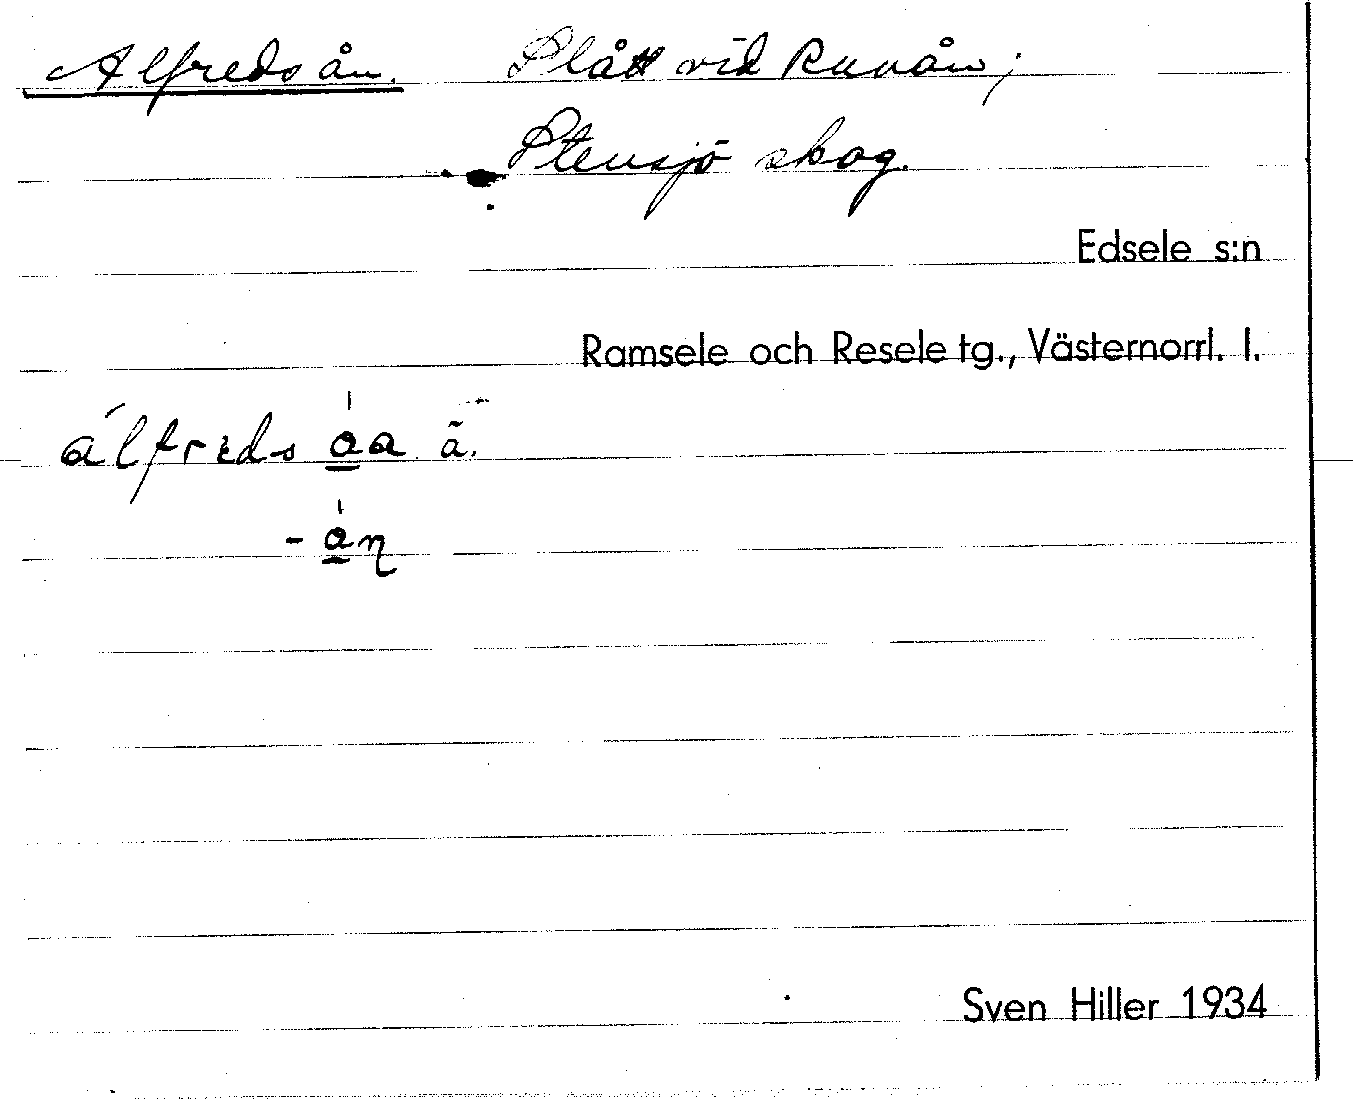 Alfredsån. Slått vid Ruuån;
Stensjö skog.
Edsele s:n
Ramsele och Resele tg., Västernorrl. l.
álfreds åa ā.
- ån
Sven Hiller 1934